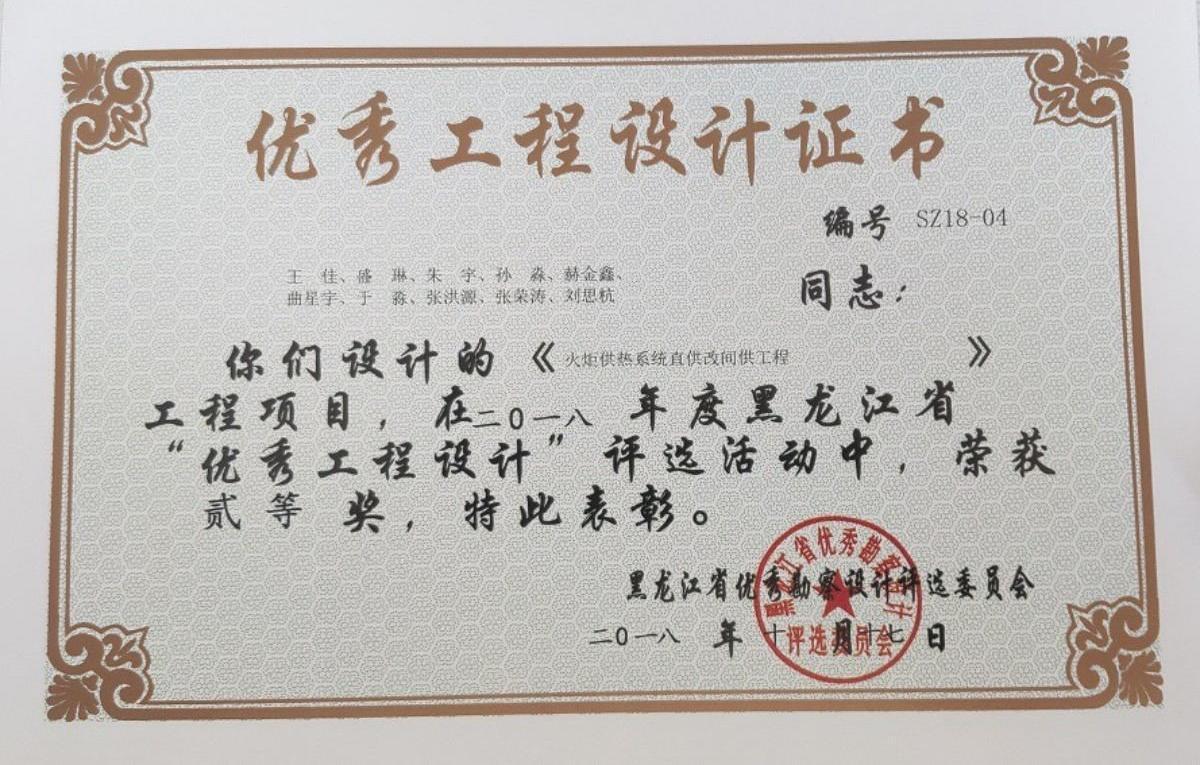 优秀工程设计证书
编号 SZ18-04
王 佳、盛 琳、朱 宇、孙 淼、赫金鑫、
曲星宇、于 淼、张洪源、张荣涛、刘思杭
同志：
你们设计的《火炬供热系统直供改间供工程》
工程项目，在二〇一八年度黑龙江省
“优秀工程设计”评选活动中，荣获
贰等奖，特此表彰。
黑龙江省优秀勘察设计评选委员会
二〇一八 年 十 月十七日
黑龙江省优秀勘察设计
评选委员会